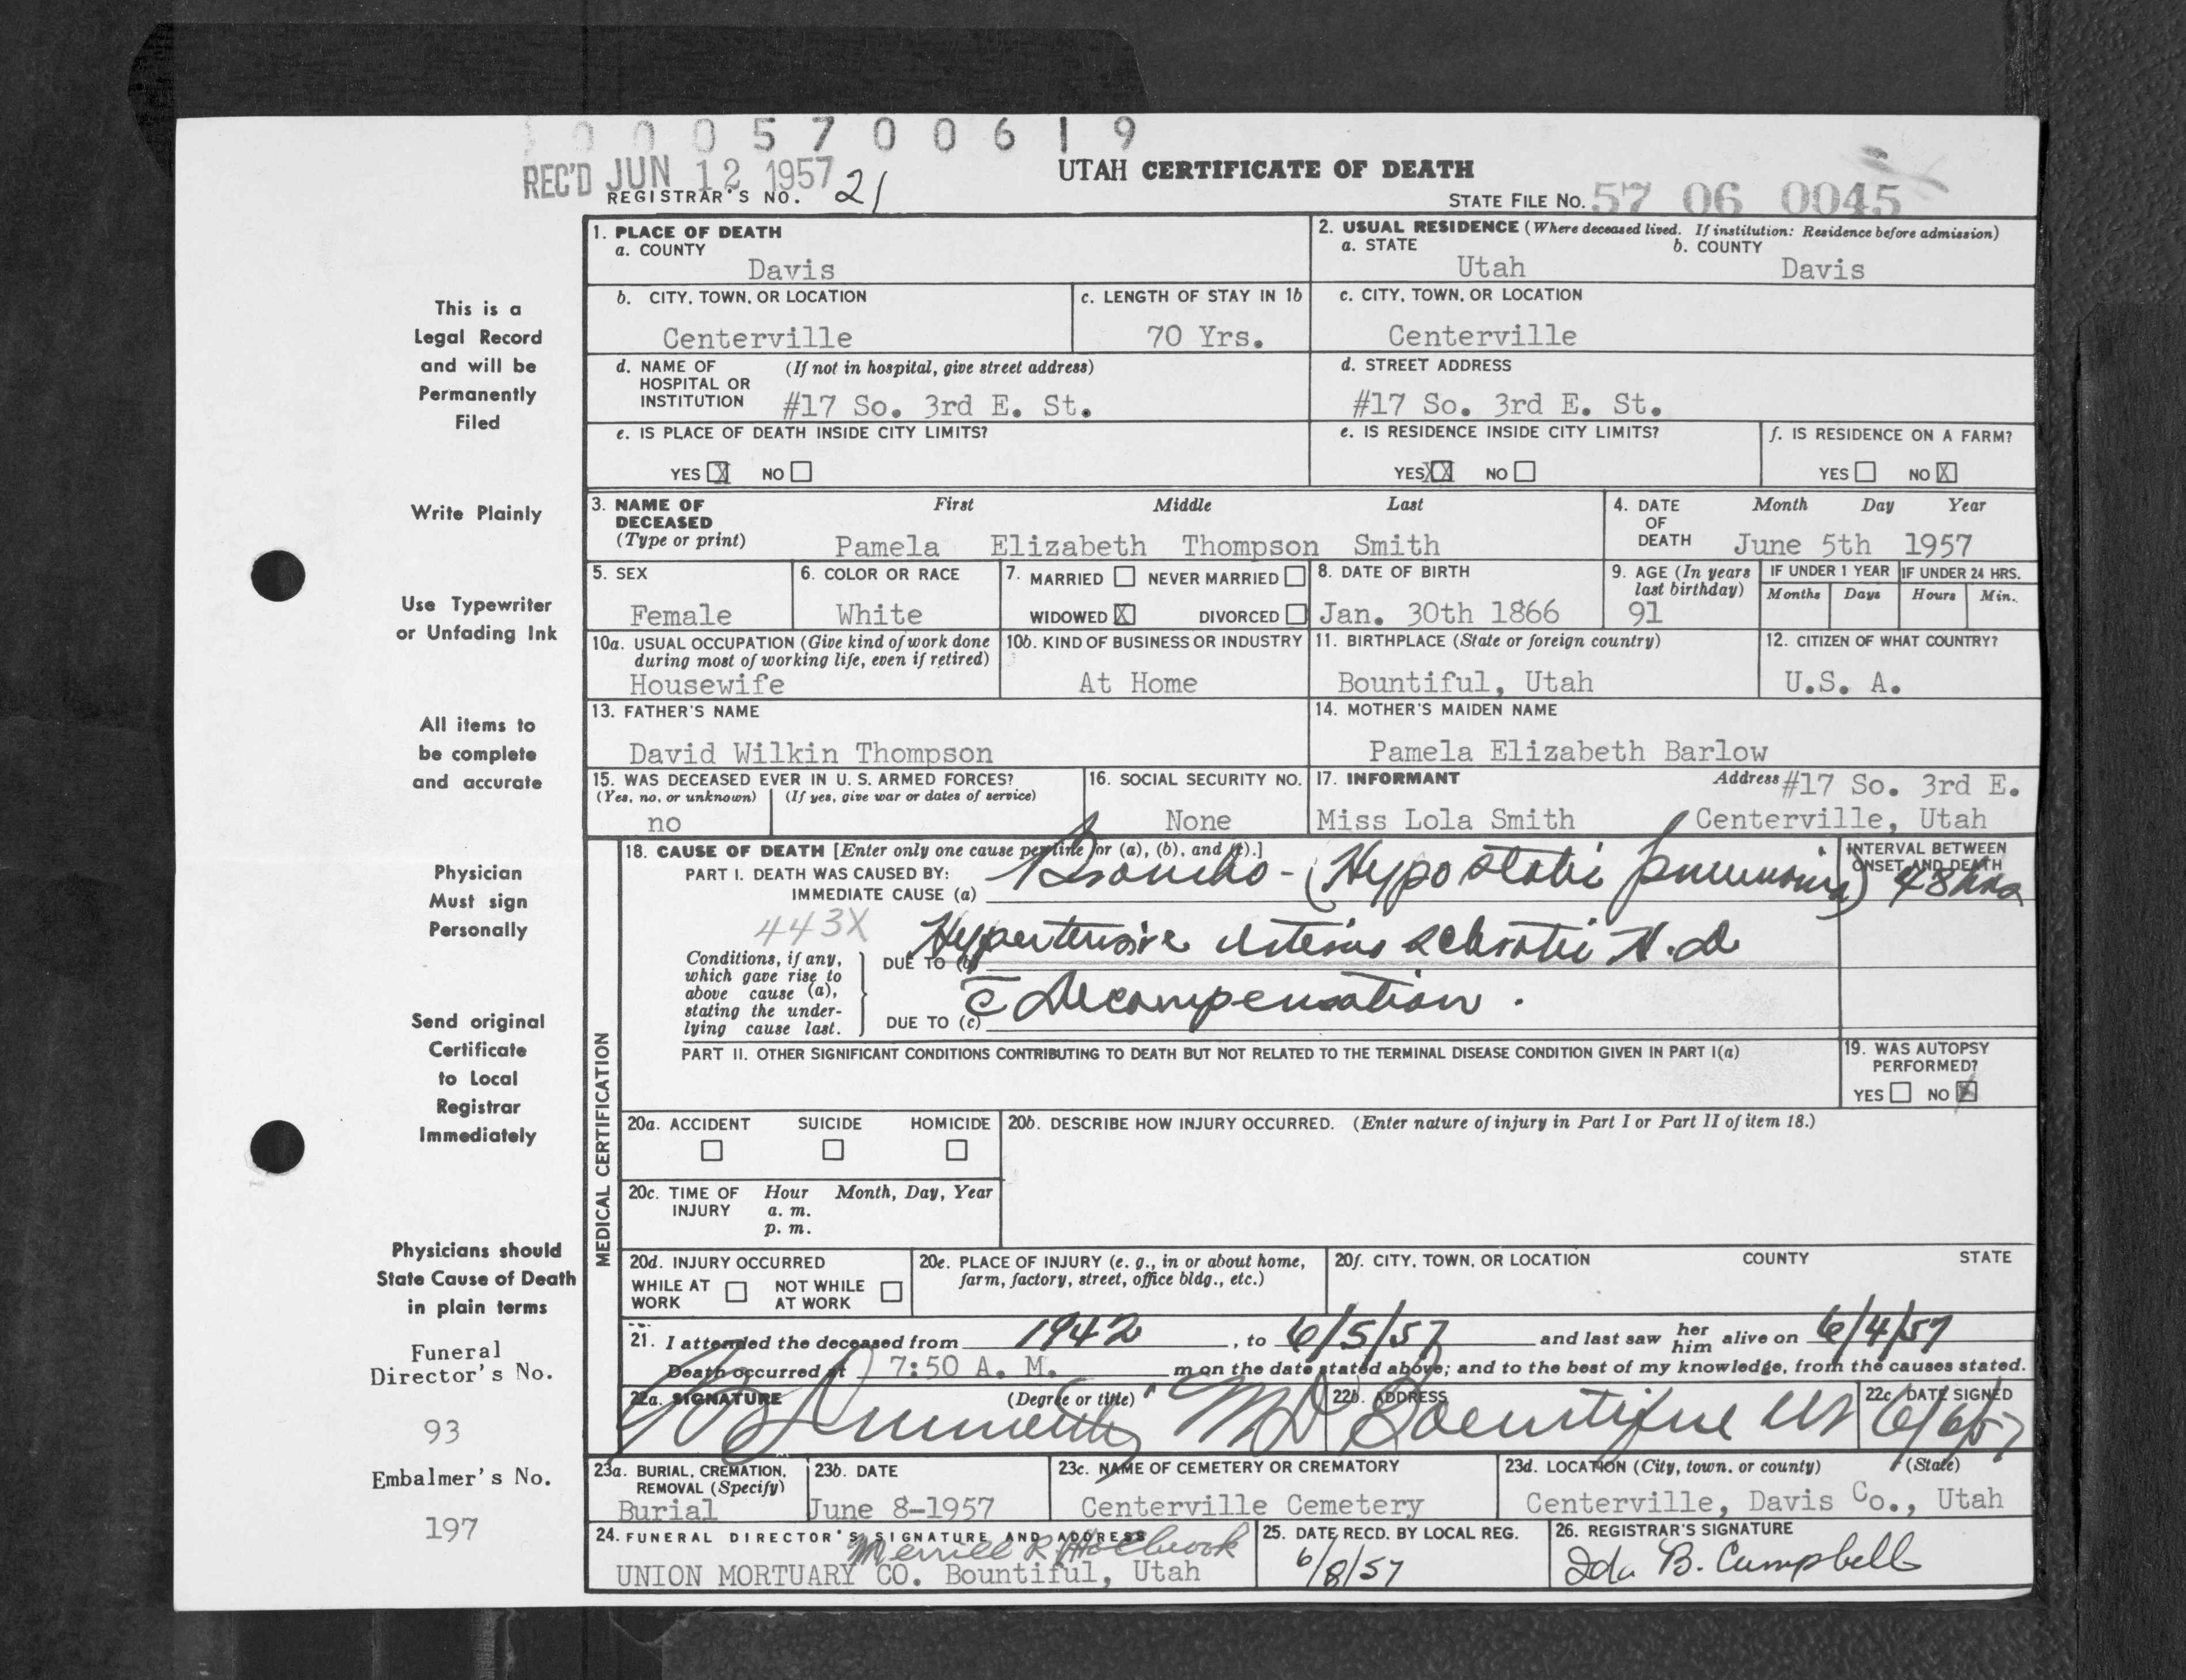 0005700619
REC'D JUN 12 1957
REGISTRAR'S NO. 21
UTAH CERTIFICATE OF DEATH
STATE FILE NO. 57 06 0045
This is a
Legal Record
and will be
Permanently
Filed
Write Plainly
Use Typewriter
or Unfading Ink
All items to
be complete
and accurate
Physician
Must sign
Personally
Send original
Certificate
to Local
Registrar
Immediately
Physicians should
State Cause of Death
in plain terms
Funeral
Director's No.
93
Embalmer's No.
197
1. PLACE OF DEATH
a. COUNTY
Davis
2. USUAL RESIDENCE (Where deceased lived. If institution: Residence before admission)
a. STATE b. COUNTY
Utah Davis
b. CITY, TOWN, OR LOCATION
Centerville
c. LENGTH OF STAY IN 1b
70 Yrs.
c. CITY, TOWN, OR LOCATION
Centerville
d. NAME OF (If not in hospital, give street address)
HOSPITAL OR
INSTITUTION #17 So. 3rd E. St.
d. STREET ADDRESS
#17 So. 3rd E. St.
e. IS PLACE OF DEATH INSIDE CITY LIMITS?
YES X NO
e. IS RESIDENCE INSIDE CITY LIMITS?
YES XX NO
f. IS RESIDENCE ON A FARM?
YES NO X
3. NAME OF First Middle Last
DECEASED
(Type or print) Pamela Elizabeth Thompson Smith
4. DATE Month Day Year
OF
DEATH June 5th 1957
5. SEX
Female
6. COLOR OR RACE
White
7. MARRIED NEVER MARRIED
WIDOWED X DIVORCED
8. DATE OF BIRTH
Jan. 30th 1866
9. AGE (In years
last birthday)
91
IF UNDER 1 YEAR
Months Days
IF UNDER 24 HRS.
Hours Min.
10a. USUAL OCCUPATION (Give kind of work done
during most of working life, even if retired)
Housewife
10b. KIND OF BUSINESS OR INDUSTRY
At Home
11. BIRTHPLACE (State or foreign country)
Bountiful, Utah
12. CITIZEN OF WHAT COUNTRY?
U.S. A.
13. FATHER'S NAME
David Wilkin Thompson
14. MOTHER'S MAIDEN NAME
Pamela Elizabeth Barlow
15. WAS DECEASED EVER IN U. S. ARMED FORCES?
(Yes, no, or unknown) (If yes, give war or dates of service)
no
16. SOCIAL SECURITY NO.
None
17. INFORMANT Address #17 So. 3rd E.
Miss Lola Smith Centerville, Utah
MEDICAL CERTIFICATION
18. CAUSE OF DEATH [Enter only one cause per line for (a), (b), and (c).]
PART I. DEATH WAS CAUSED BY:
IMMEDIATE CAUSE (a) Broncho - (Hypostatic pneumonia)
INTERVAL BETWEEN
ONSET AND DEATH
48 hrs
443X
Conditions, if any,
which gave rise to
above cause (a),
stating the under-
lying cause last.
DUE TO (b) Hypertensive arterio sclerotic H. D
DUE TO (c) c̄ Decompensation.
PART II. OTHER SIGNIFICANT CONDITIONS CONTRIBUTING TO DEATH BUT NOT RELATED TO THE TERMINAL DISEASE CONDITION GIVEN IN PART I(a)
19. WAS AUTOPSY
PERFORMED?
YES NO X
20a. ACCIDENT SUICIDE HOMICIDE
20b. DESCRIBE HOW INJURY OCCURRED. (Enter nature of injury in Part I or Part II of item 18.)
20c. TIME OF Hour Month, Day, Year
INJURY a. m.
p. m.
20d. INJURY OCCURRED
WHILE AT NOT WHILE
WORK AT WORK
20e. PLACE OF INJURY (e. g., in or about home,
farm, factory, street, office bldg., etc.)
20f. CITY, TOWN, OR LOCATION COUNTY STATE
21. I attended the deceased from 1942, to 6/5/57 and last saw her him alive on 6/4/57
Death occurred at 7:50 A. M. m on the date stated above; and to the best of my knowledge, from the causes stated.
22a. SIGNATURE (Degree or title)
MD
22b. ADDRESS
Bountiful Ut
22c. DATE SIGNED
6/6/57
23a. BURIAL, CREMATION,
REMOVAL (Specify)
Burial
23b. DATE
June 8-1957
23c. NAME OF CEMETERY OR CREMATORY
Centerville Cemetery
23d. LOCATION (City, town, or county) (State)
Centerville, Davis Co., Utah
24. FUNERAL DIRECTOR'S SIGNATURE AND ADDRESS
Merrill R Holbrook
UNION MORTUARY CO. Bountiful, Utah
25. DATE RECD. BY LOCAL REG.
6/8/57
26. REGISTRAR'S SIGNATURE
Ida B. Campbell